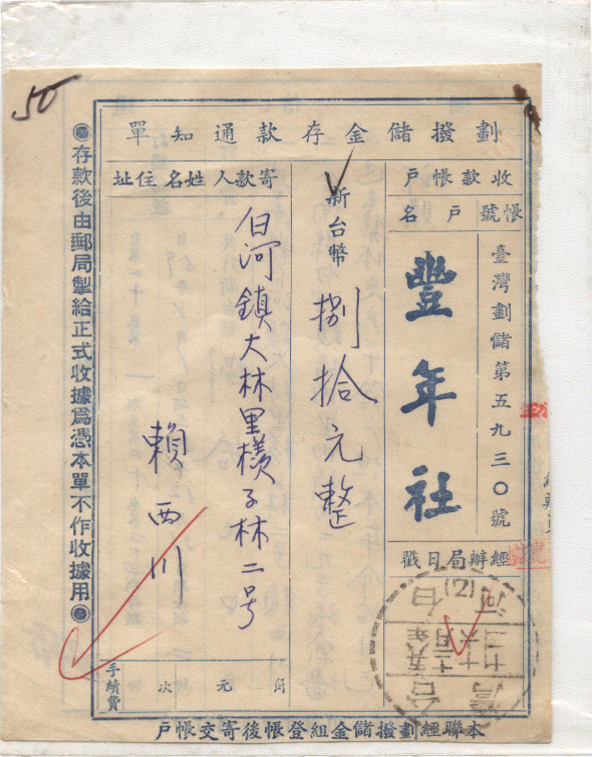 50
劃撥儲金存款通知單
收款帳戶
帳號戶名
臺灣劃儲第五九三〇號
豐年社
經辦局日戳
白(2)河
台灣
新台幣捌拾元整
寄款人姓名住址
白河鎮大林里檨子林二号
賴西川
手續費
角元次
●存款後由郵局掣給正式收據爲憑本單不作收據用●
本聯經劃撥儲金組登帳後寄交帳戶